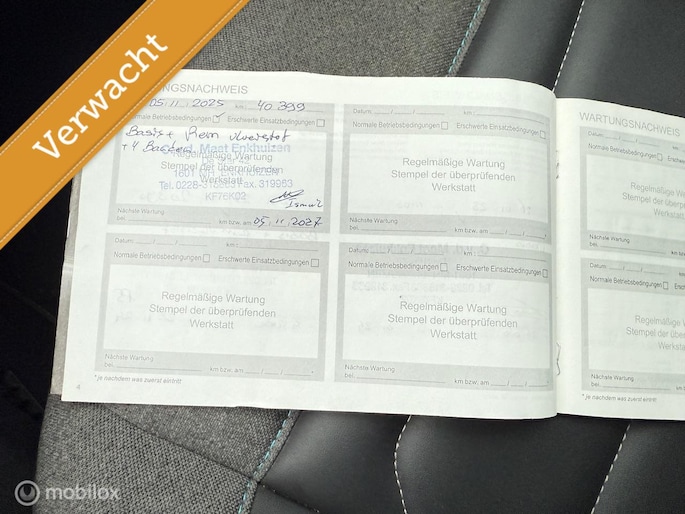 Verwacht
WARTUNGSNACHWEIS
05.11.2025 km: 40.399
Normale Betriebsbedingungen Erschwerte Einsatzbedingungen
Basis + Rem vloeistof
+ 4 Banden
Maat Enkhuizen
Regelmäßige Wartung
Stempel der überprüfenden
Werkstatt
Tel. 0228- Fax. 319963
KF76K02
Nächste Wartung
bei km bzw. am 05.11.2027
Datum: / / km:
Normale Betriebsbedingungen Erschwerte Einsatzbedingungen
Regelmäßige Wartung
Stempel der überprüfenden
Werkstatt
Nächste Wartung
bei km bzw. am / /
Datum: / / km:
Normale Betriebsbedingungen Erschwerte Einsatzbedingungen
Regelmäßige Wartung
Stempel der überprüfenden
Werkstatt
Nächste Wartung
bei km bzw. am / /
Datum: / / km:
Normale Betriebsbedingungen Erschwerte Einsatzbedingungen
Regelmäßige Wartung
Stempel der überprüfenden
Werkstatt
Nächste Wartung
bei km bzw. am / /
* je nachdem was zuerst eintritt
4
WARTUNGSNACHWEIS
Datum: / /
Normale Betriebsbedingungen
Regelmäßige
Stempel der
Nächste Wartung
bei
Datum: / /
Normale Betriebsbedingungen
Regelmäßige
Stempel der überprüfenden
Nächste Wartung
bei
* je nachdem was zuerst eintritt
mobilox